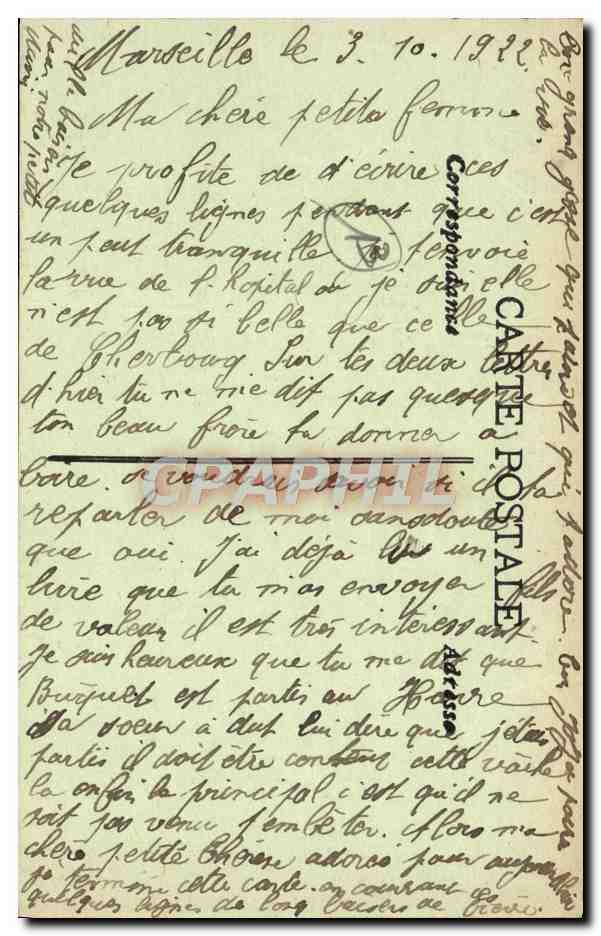 Marseille le 3. 10. 1922.
Ma chère petite femme
Je profite de d'écrire ces
quelques lignes pendant que c'est
un peut tranquille je t'envoie
la vue de l'hopital ou je suis elle
n'est pas si belle que celle
de Cherbourg Sur tes deux lettres
d'hier tu ne me dit pas quesque
ton beau frère ta donner a
boire. je voudrais savoir si il ta
reparler de moi sansdoute
que oui. J'ai déjà lu un
livre que tu m'as envoyer
de valeur il est très intéressant.
Je suis heureux que tu me dit que
Buquet est partis au Havre
sa soeur à dut lui dire que j'étais
partis il doit être content cette vache
la enfin le principal c'est qu'il ne
soit pas venu t'embêter. Alors ma
chère petite Thérèse adorée pour aujourd'hui
je termine cette carte en
quelques lignes de bons baisers de
Ton grand gosse qui
la vie.
qui t'adore.
pour notre petit
CARTE POSTALE
Correspondance
Adresse
CPAPHIL